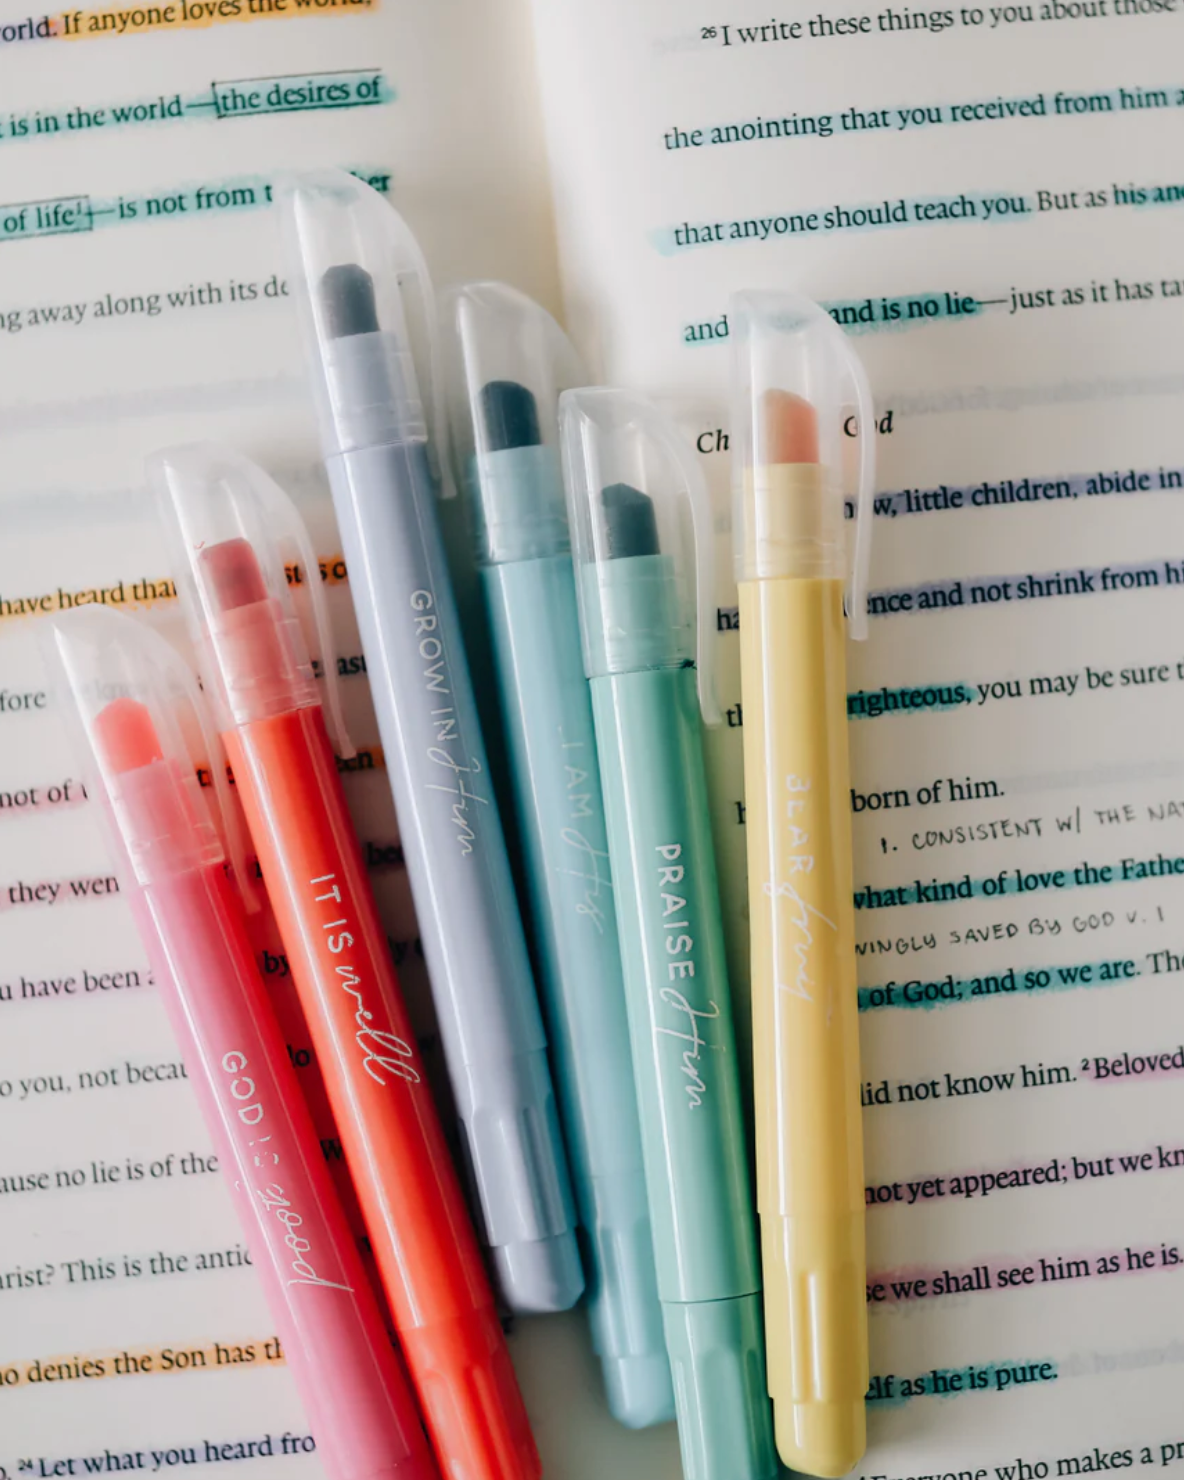 world. If anyone loves the world,
is in the world—the desires of
of life¹—is not from
away along with its
have heard that
fore
not of
they
have been
to you, not
no lie is of the
This is the
denies the Son has
24 Let what you heard
26 I write these things to you about those
the anointing that you received from him
that anyone should teach you. But as his
and and is no lie—just as it has
God
little children, abide in
and not shrink from
righteous, you may be sure
born of him.
1. CONSISTENT W/ THE
what kind of love the
SAVED BY GOD V. 1
of God; and so we are.
not know him. 2 Beloved
not yet appeared; but we
we shall see him as he is.
as he is pure.
who makes a
GOD IS good
IT IS well
GROW IN Him
I AM His
PRAISE Him
BEAR fruit